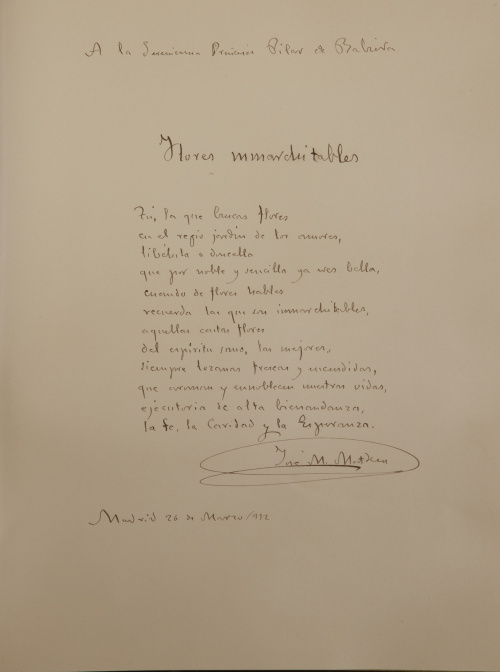 A la Serenísima Princesa Pilar de Babiera
Flores inmarchitables
Tú, la que buscas flores
en el regio jardín de los amores,
libélula o doncella
que por noble y sencilla ya eres bella,
cuando de flores hables
recuerda las que son inmarchitables,
aquellas castas flores
del espíritu sano, las mejores,
siempre lozanas frescas y encendidas,
que aroman y ennoblecen nuestras vidas,
ejecutoria de alta bienandanza,
la fe, la Caridad y la Esperanza.
José M.
Madrid 26 de Marzo/912